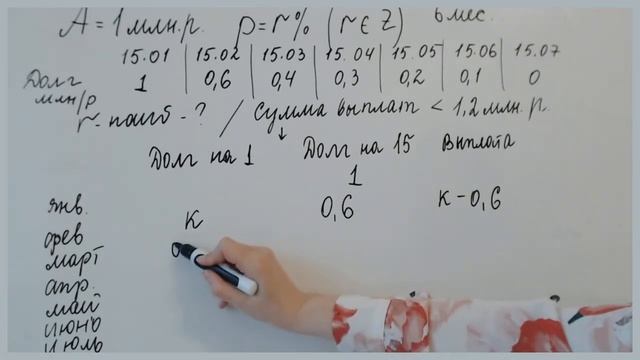 A = 1 млн.р. p = r% (r ∈ Z) 6 мес.
15.01 | 15.02 | 15.03 | 15.04 | 15.05 | 15.06 | 15.07
Долг млн/р 1 0,6 0,4 0,3 0,2 0,1 0
r - наиб - ? / Сумма выплат < 1,2 млн.р.
Долг на 1 Долг на 15 Выплата
1
янв. 0,6 к - 0,6
к
фев
март
апр.
май
июнь
июль